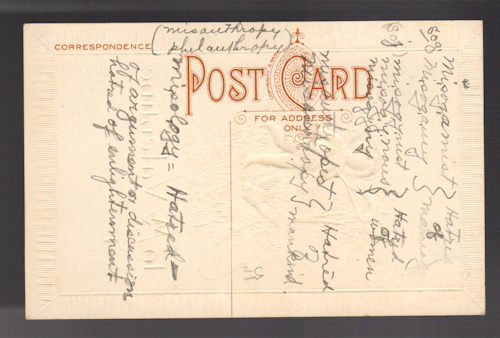 (misanthropy
philanthropy)
CORRESPONDENCE
POST CARD
FOR ADDRESS
ONLY
Misogamist } Hatred
808 Misogamy } of
(808) misogynist } Hatred
misogynous } of
misogyny } women
misanthropist } Hatred
misanthropy } of mankind
Misology = Hatred =
of argument or discussion
hatred of enlightenment